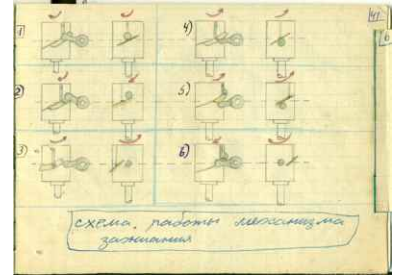 1
4)
47
6
2
5)
3
6)
схема работы механизма
зажигания